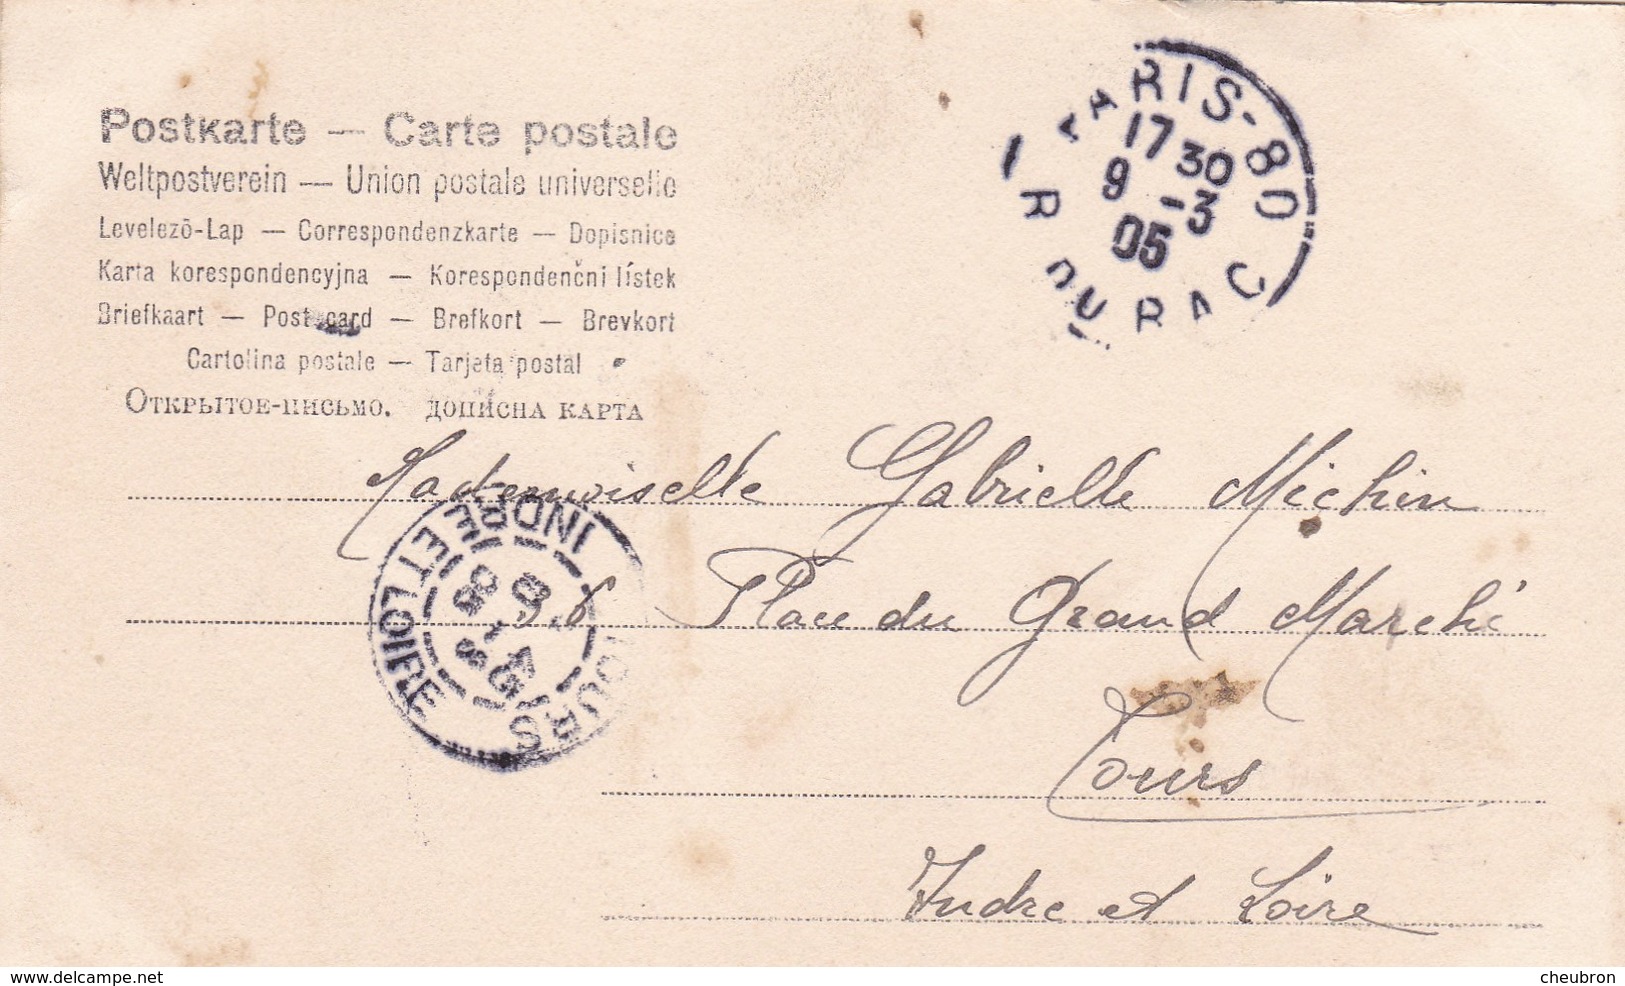 Postkarte — Carte postale
Weltpostverein — Union postale universelle
Levelezõ-Lap — Correspondenzkarte — Dopisnice
Karta korespondencyjna — Korespondenčni lístek
Briefkaart — Post card — Brefkort — Brevkort
Cartolina postale — Tarjeta postal
Открытое-письмо. дописна карта
PARIS-80
17 30
9 -3
05
R DU BAC
Mademoiselle Gabrielle Michin
Place du Grand Marché
Tours
Indre et Loire
TOURS
INDRE ET LOIRE
www.delcampe.net
cheubron